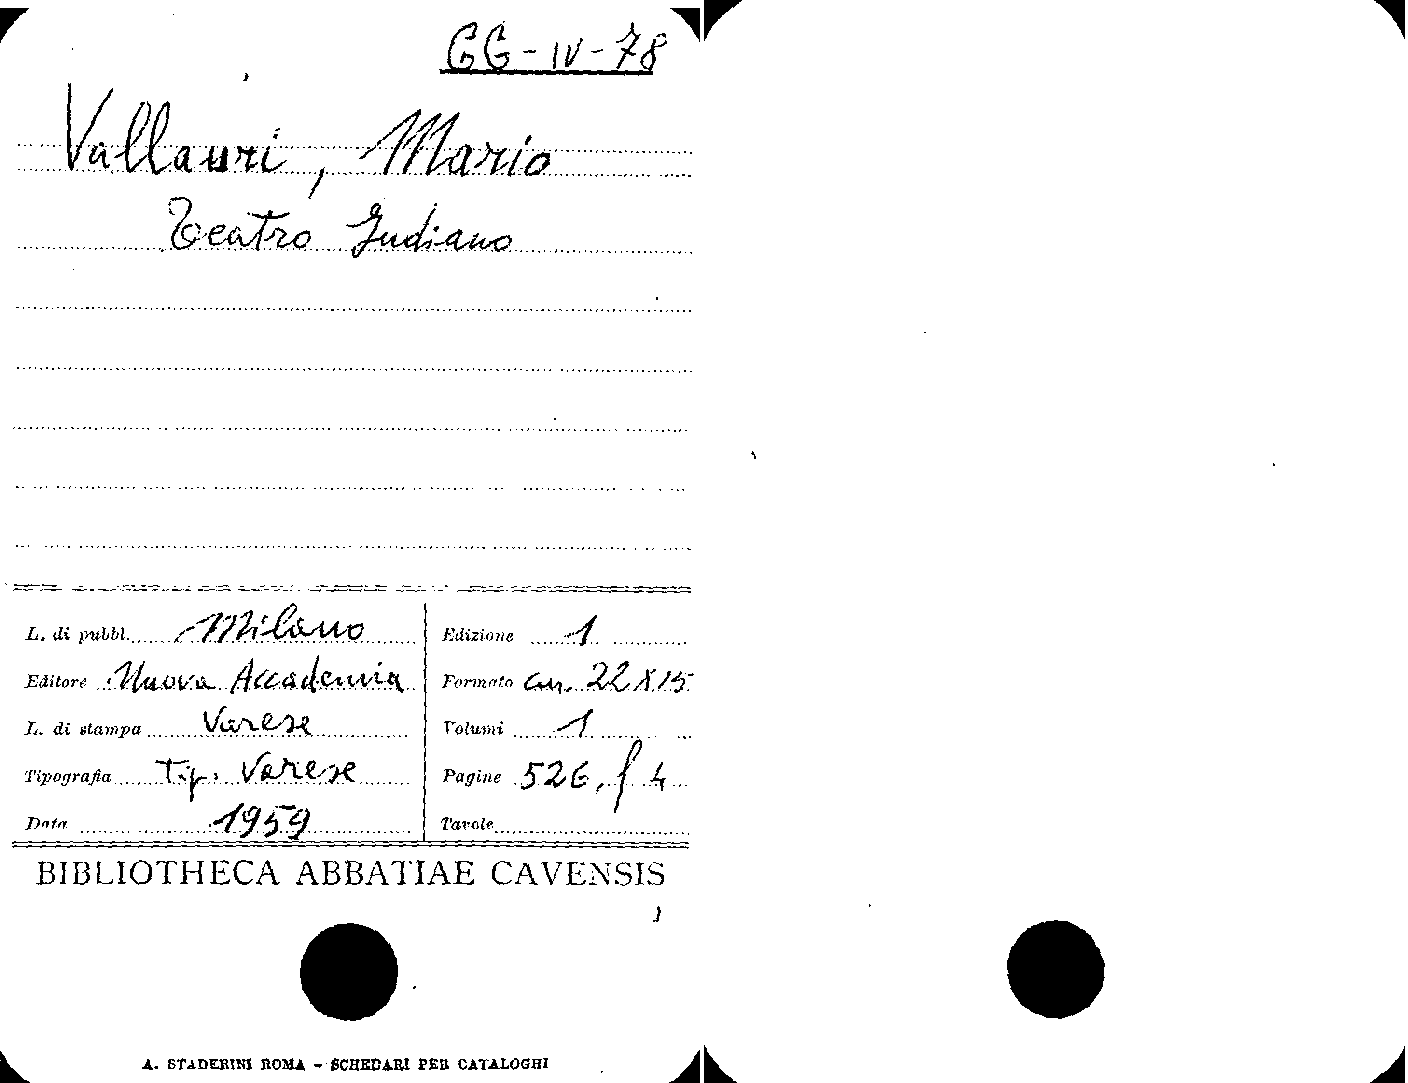 GG-IV-78
Vallauri, Mario
Teatro Indiano
L. di pubbl. Milano
Editore Nuova Accademia
L. di stampa Varese
Tipografia Tip. Varese
Data 1959
Edizione 1
Formato cm. 22x15
Volumi 1
Pagine 526, f 4
Tavole
BIBLIOTHECA ABBATIAE CAVENSIS
A. STADERINI ROMA - SCHEDARI PER CATALOGHI